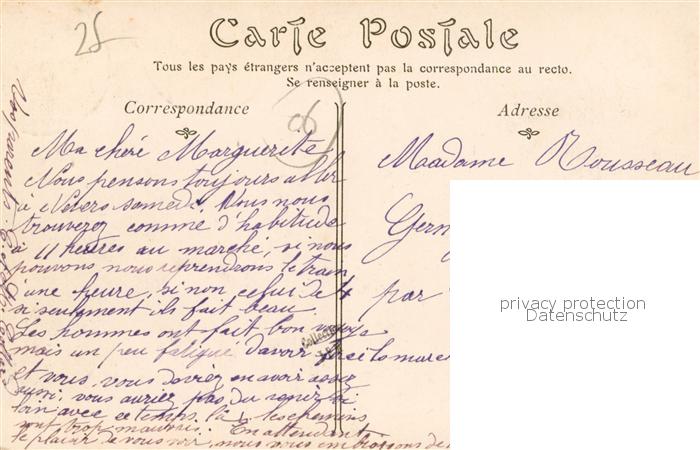 25
Carte Postale
Tous les pays étrangers n'acceptent pas la correspondance au recto.
Se renseigner à la poste.
Correspondance
Adresse
Ma chère Marguerite
Nous pensons toujours aller
à Nevers samedi. Vous nous
trouverez comme d'habitude
à 11 heures au marché, si nous
pouvons nous reprendrons le train
à une heure, si non celui de 4
si seulement ils fait beau.
Les hommes ont fait bon
mais un peu fatigué d'avoir
et vous, vous deviez en avoir assez
aussi, vous auriez pas du venir si
loin avec ce temps là & les chemins
sont trop mauvais. En attendant
le plaisir de vous voir, nous vous embrassons de
Madame Rousseau
par
privacy protection
Datenschutz